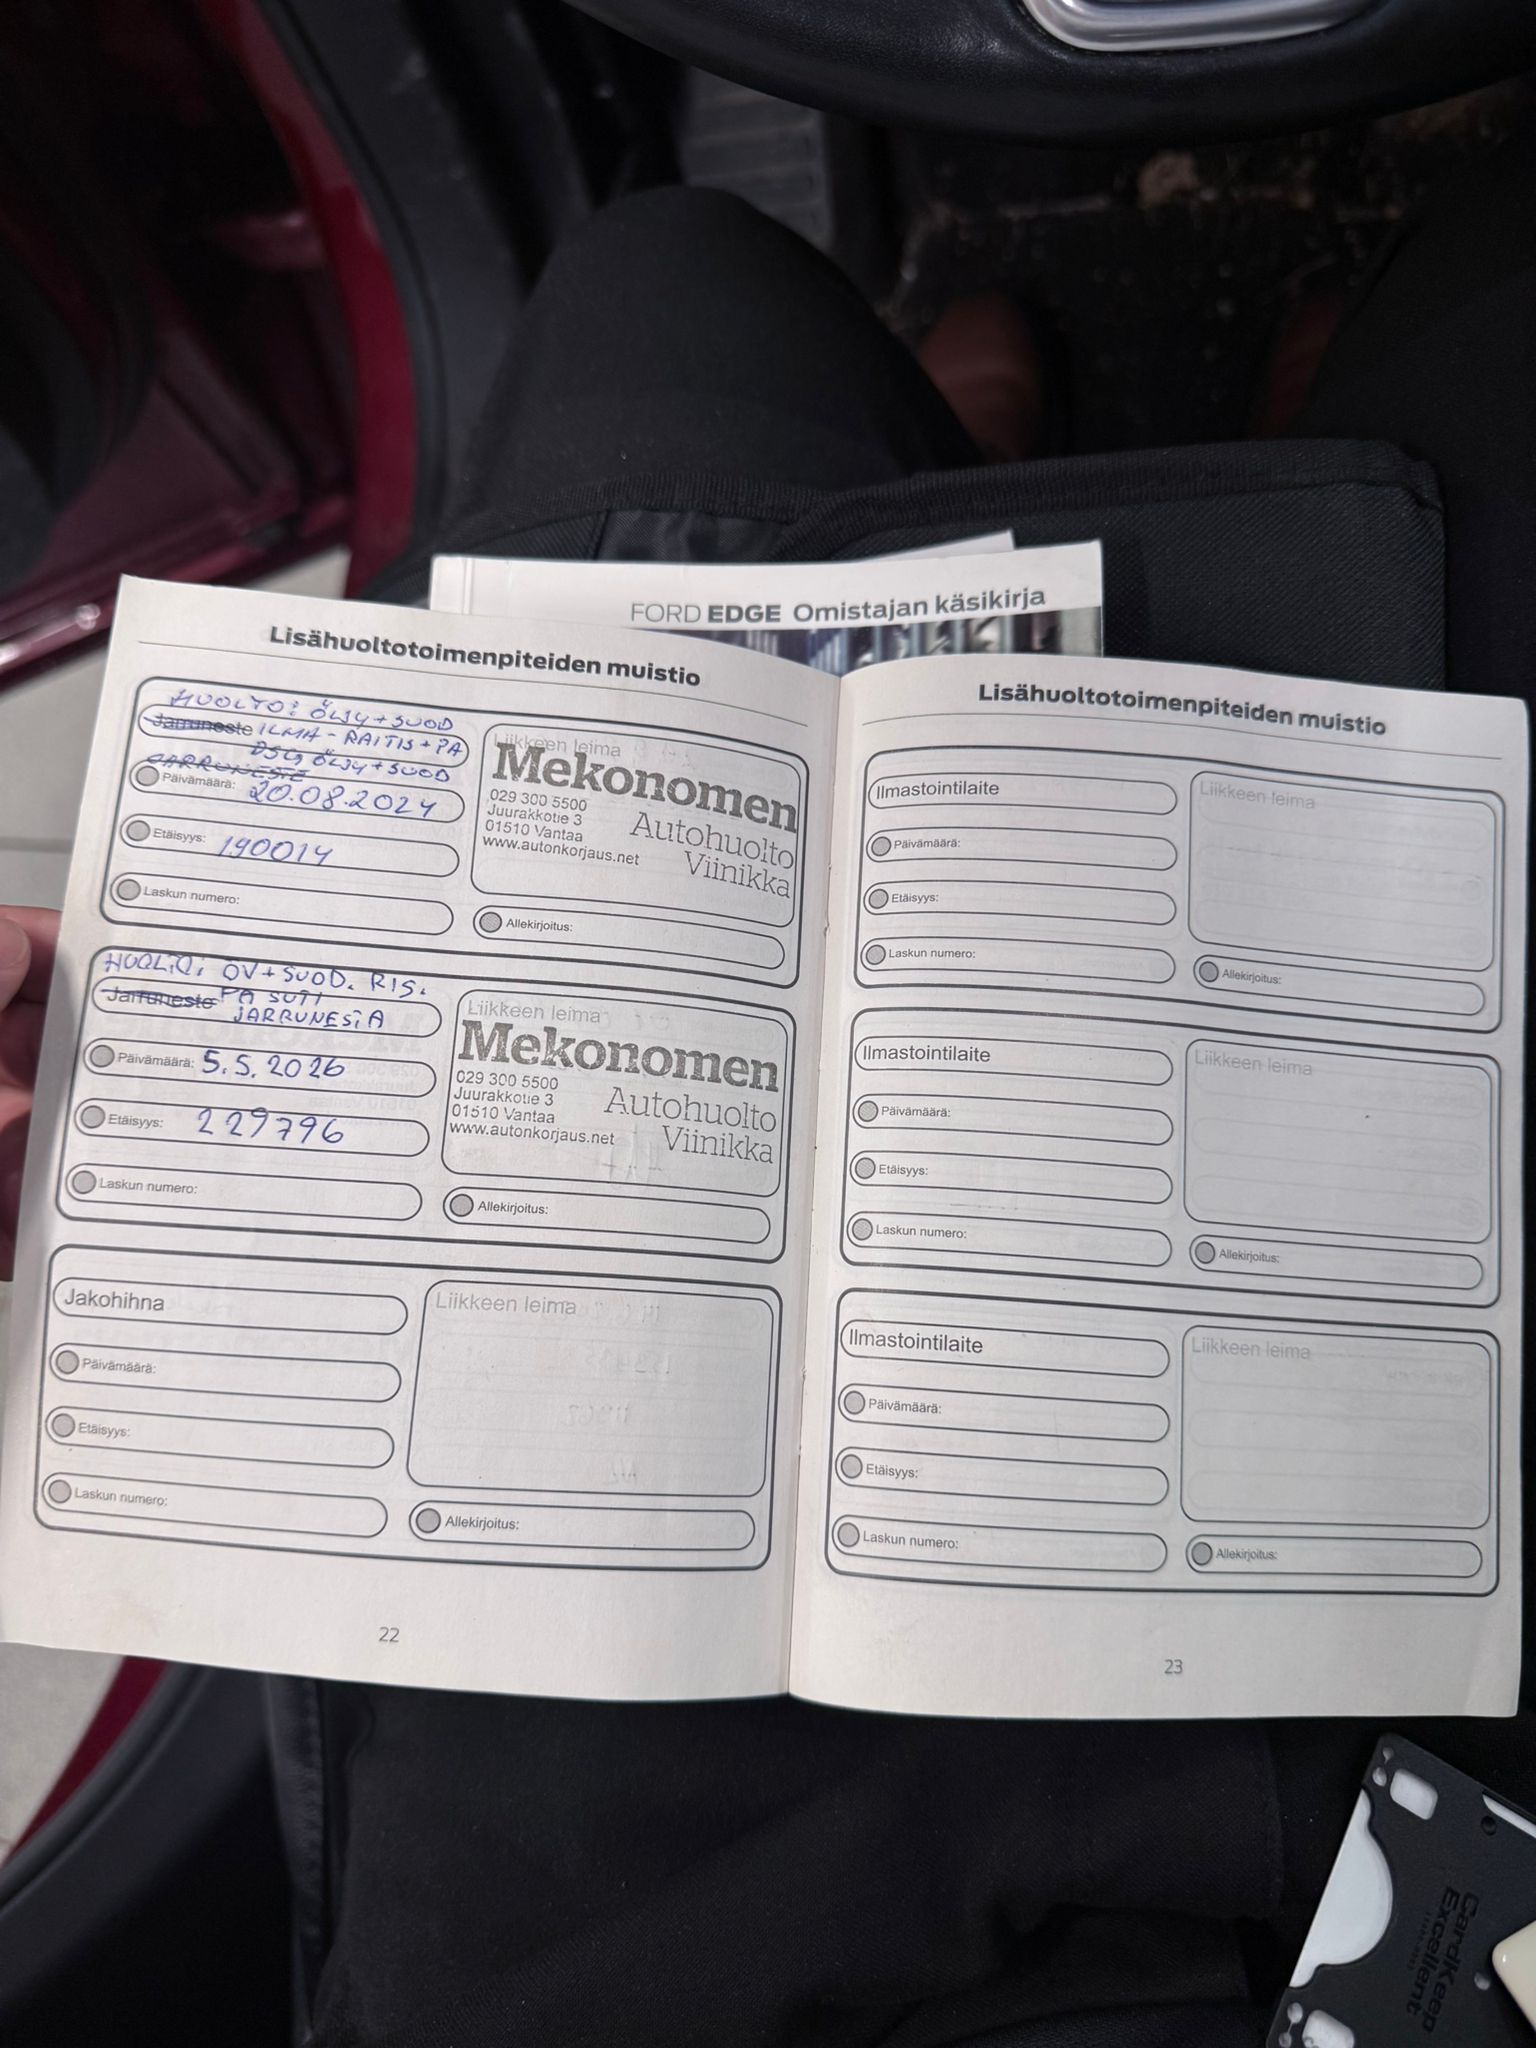 FORD EDGE Omistajan käsikirja
Lisähuoltotoimenpiteiden muistio
HUOLTO: ÖLJY + SUOD
Jarruneste ILMA - RAITIS + PA
DSG ÖLJY + SUOD
JARRUNESTE
Päivämäärä: 20.08.2024
Etäisyys: 190014
Laskun numero:
Liikkeen leima
Mekonomen
029 300 5500
Juurakkotie 3
01510 Vantaa
www.autonkorjaus.net
Autohuolto
Viinikka
Allekirjoitus:
HUOLTO: ÖV + SUOD. RIS.
Jarruneste PA SUTI
JARRUNESTA
Päivämäärä: 5.5.2026
Etäisyys: 229796
Laskun numero:
Liikkeen leima
Mekonomen
029 300 5500
Juurakkotie 3
01510 Vantaa
www.autonkorjaus.net
Autohuolto
Viinikka
Allekirjoitus:
Jakohihna
Päivämäärä:
Etäisyys:
Laskun numero:
Liikkeen leima
Allekirjoitus:
22
Lisähuoltotoimenpiteiden muistio
Ilmastointilaite
Päivämäärä:
Etäisyys:
Laskun numero:
Liikkeen leima
Allekirjoitus:
Ilmastointilaite
Päivämäärä:
Etäisyys:
Laskun numero:
Liikkeen leima
Allekirjoitus:
Ilmastointilaite
Päivämäärä:
Etäisyys:
Laskun numero:
Liikkeen leima
Allekirjoitus:
23
CardKeep
Excellent